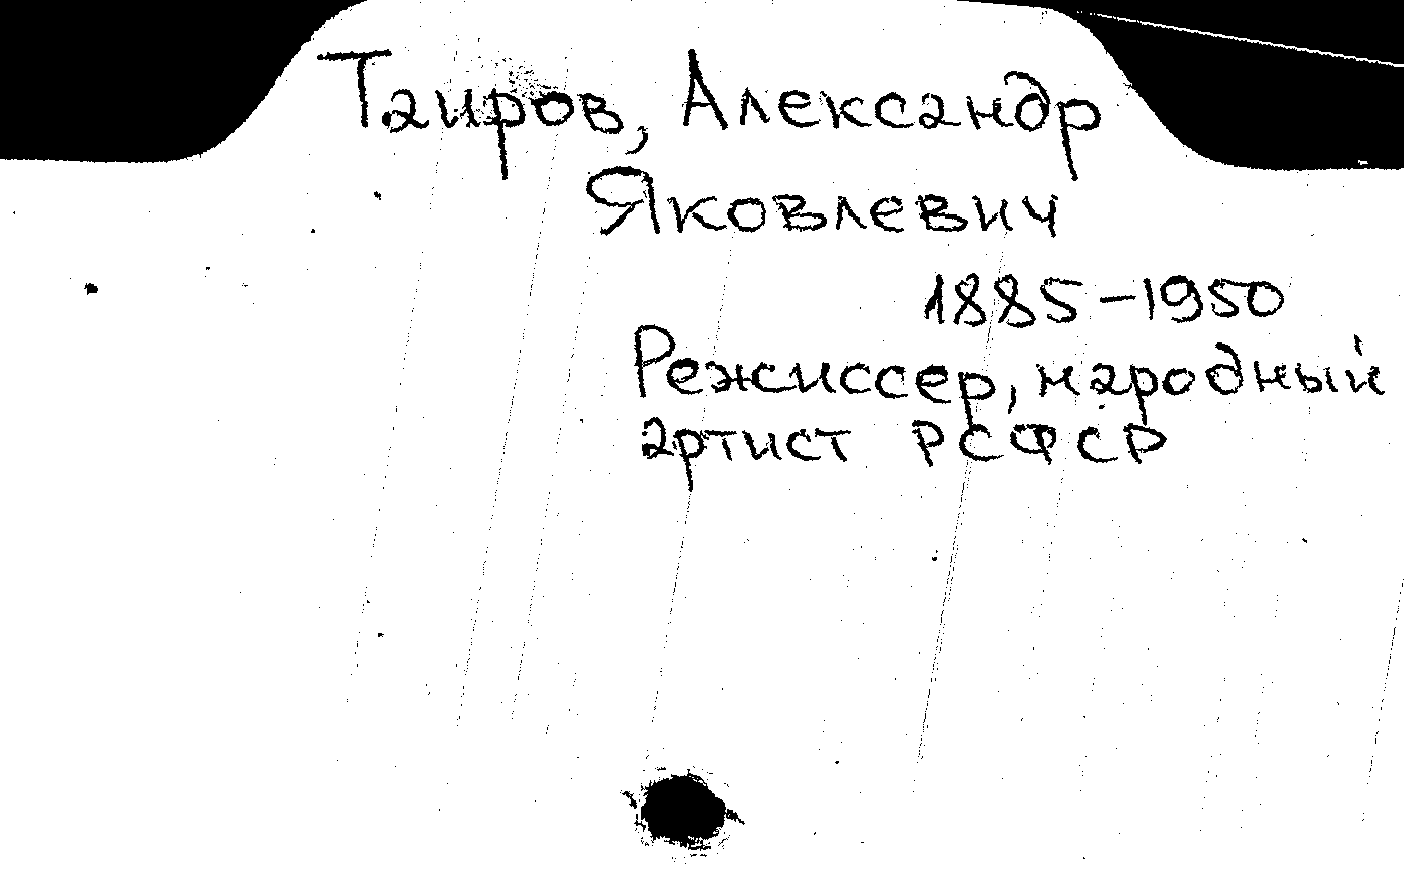 Таиров, Александр
Яковлевич
1885-1950
Режиссер, народный
артист РСФСР